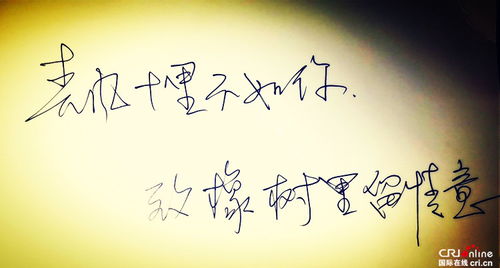 春风十里不如你.
致橡树里留情意
CRI Online
国际在线 cri.cn